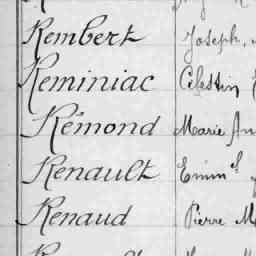 Rembert Joseph
Reminiac Célestin
Rémond Marie
Renault Emm.el
Renaud Pierre